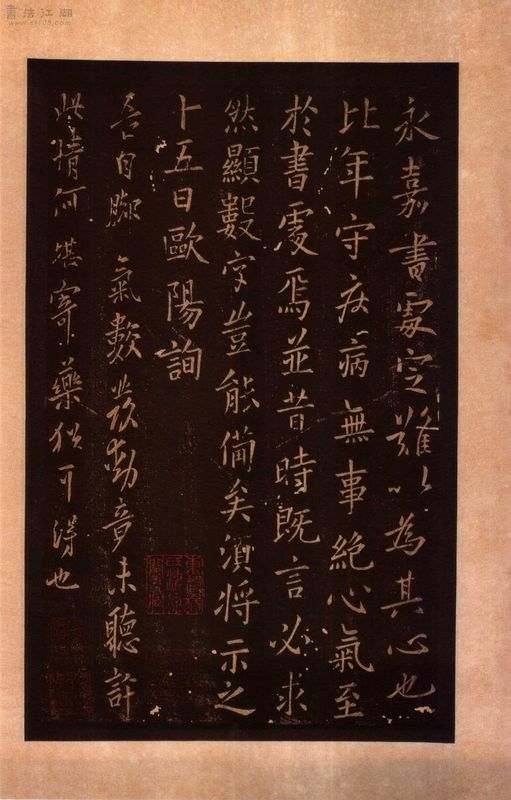 永嘉書處空難以為其心也
比年守疾病無事絶心氣至
於書處焉並昔時既言必求
然顯數字豈能備矣須將示之
十五日歐陽詢
吾自腳氣數發動竟未聽許
此情何堪寄藥猶可得也
書法江湖